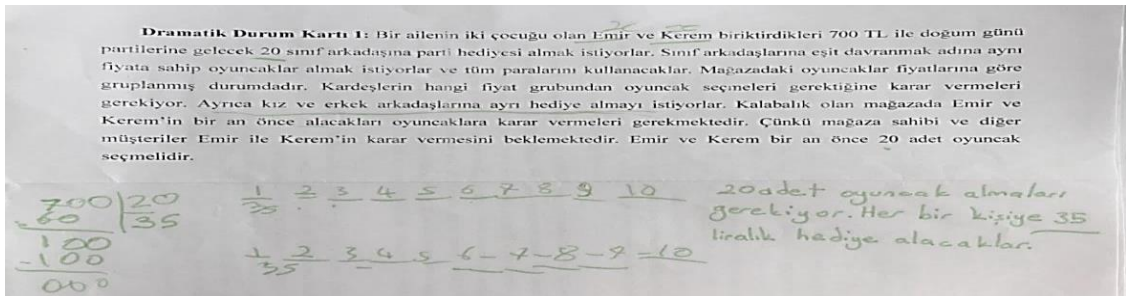 Dramatik Durum Kartı 1: Bir ailenin iki çocuğu olan Emir ve Kerem biriktirdikleri 700 TL ile doğum günü
partilerine gelecek 20 sınıf arkadaşına parti hediyesi almak istiyorlar. Sınıf arkadaşlarına eşit davranmak adına aynı
fiyata sahip oyuncaklar almak istiyorlar ve tüm paralarını kullanacaklar. Mağazadaki oyuncaklar fiyatlarına göre
gruplanmış durumdadır. Kardeşlerin hangi fiyat grubundan oyuncak seçmeleri gerektiğine karar vermeleri
gerekiyor. Ayrıca kız ve erkek arkadaşlarına ayrı hediye almayı istiyorlar. Kalabalık olan mağazada Emir ve
Kerem'in bir an önce alacakları oyuncaklara karar vermeleri gerekmektedir. Çünkü mağaza sahibi ve diğer
müşteriler Emir ile Kerem'in karar vermesini beklemektedir. Emir ve Kerem bir an önce 20 adet oyuncak
seçmelidir.
700 20
- 60 35
100
-100
000
1 2 3 4 5 6 7 8 9 10
35
1 2 3 4 5 6 - 7 - 8 - 9 - 10
35
20 adet oyuncak almaları
gerekiyor. Her bir kişiye 35
liralık hediye alacaklar.